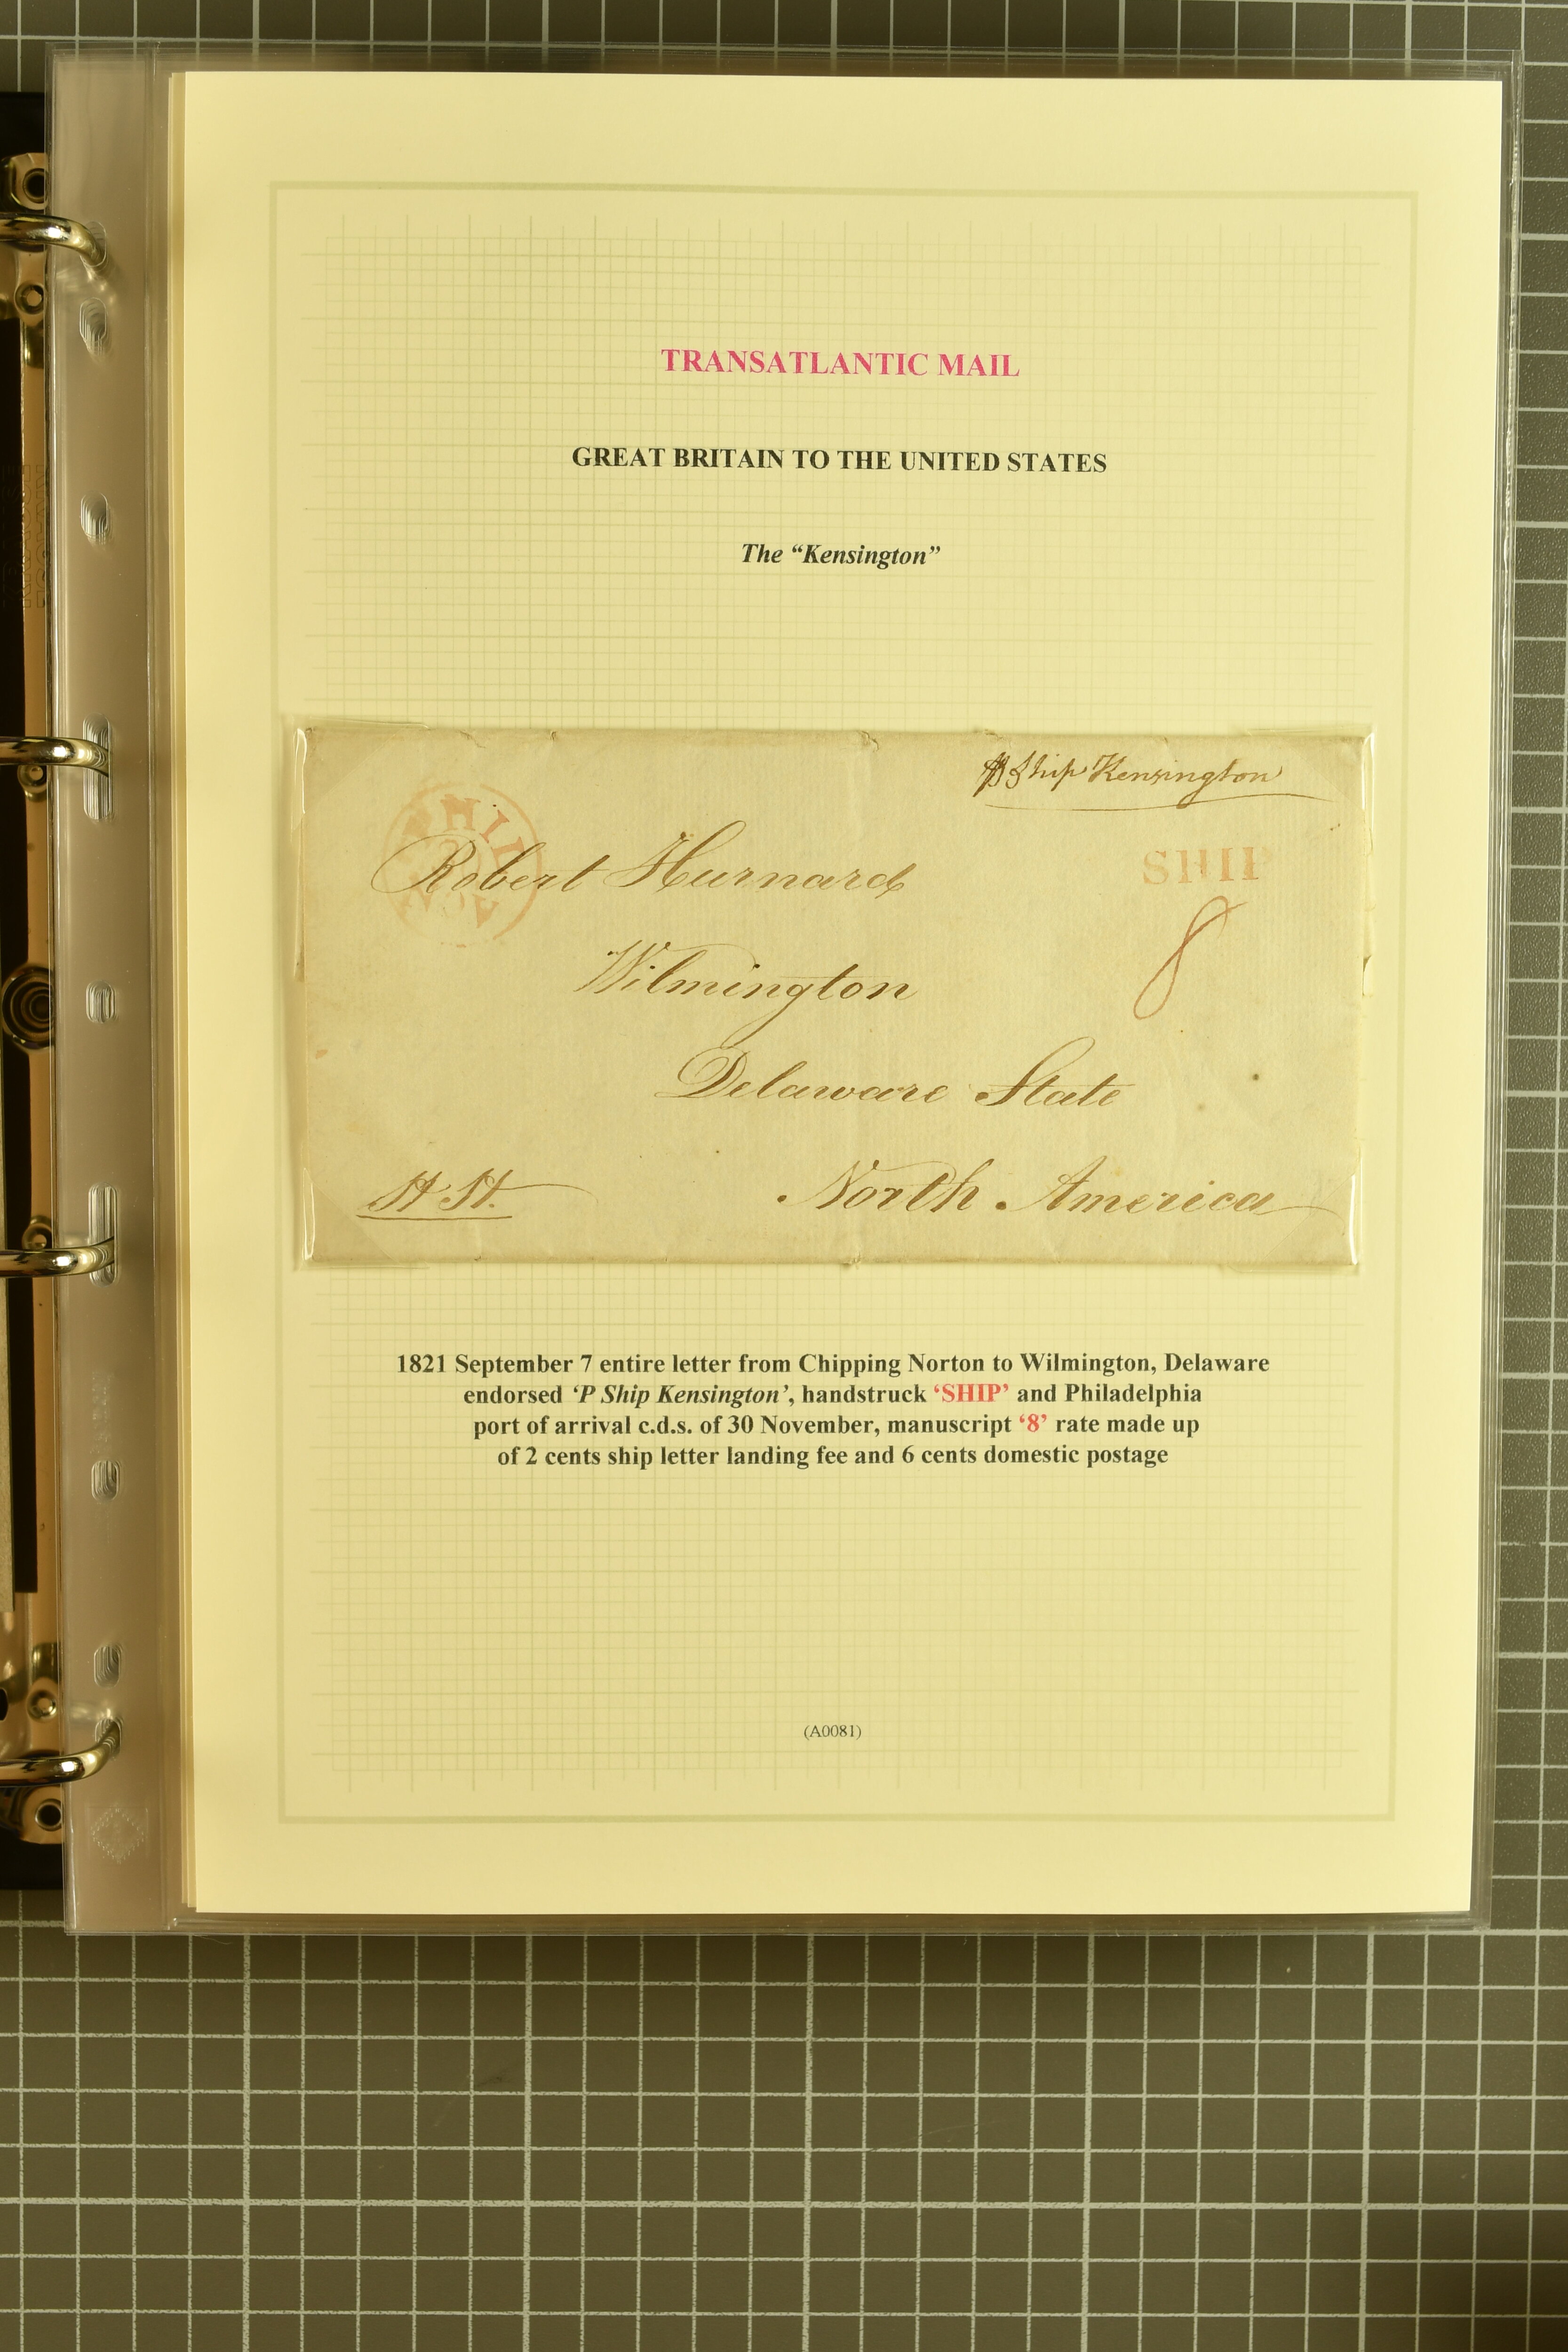 TRANSATLANTIC MAIL
GREAT BRITAIN TO THE UNITED STATES
The “Kensington”
P Ship Kensington
SHIP
NOV
SHIP
8
Robert Hurnard
Wilmington
Delaware State
North America
1821 September 7 entire letter from Chipping Norton to Wilmington, Delaware
endorsed ‘P Ship Kensington’, handstruck ‘SHIP’ and Philadelphia
port of arrival c.d.s. of 30 November, manuscript ‘8’ rate made up
of 2 cents ship letter landing fee and 6 cents domestic postage
(A0081)